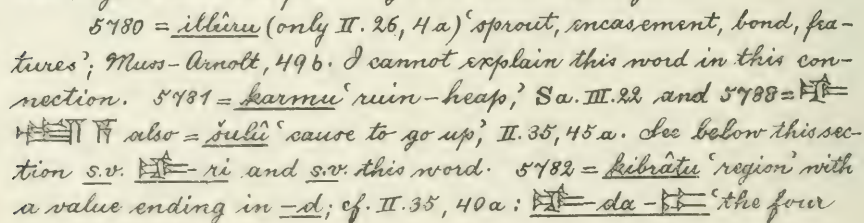 5780 = illûru (only II. 26, 4a) 'sprout, encasement, bond, fea-
tures'; Muss-Arnolt, 49b. I cannot explain this word in this con-
nection. 5781 = karmu 'ruin-heap,' Sa. III. 22 and 5788 =
also = šulû 'cause to go up,' II. 35, 45a. See below this sec-
tion s.v. -ri and s.v. this word. 5782 = kibrâtu 'region' with
a value ending in -d; cf. II. 35, 40a: -da- 'the four